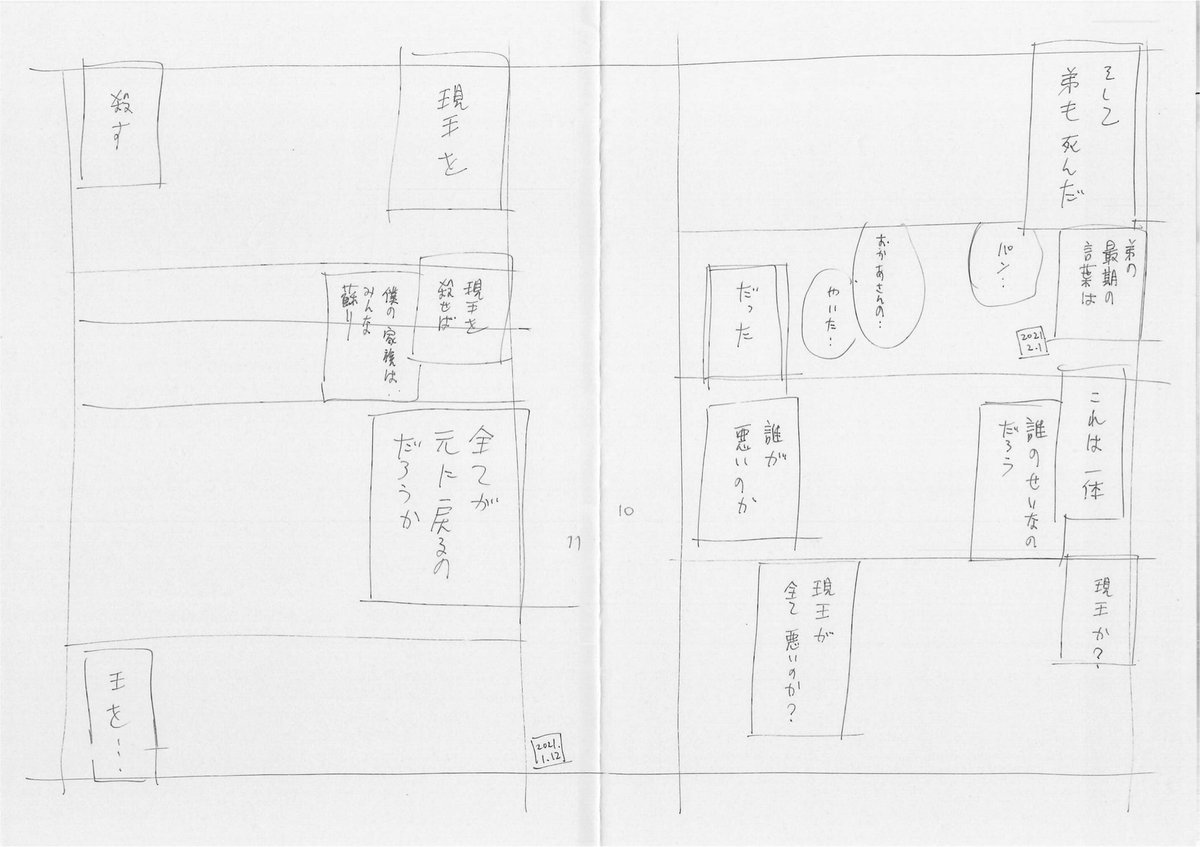 そして
弟も死んだ
弟の
最期の
言葉は
パン…
おかあさんの…
やいた…
だった
2021
2.1
これは一体
誰のせいなの
だろう
誰が
悪いのか
現王か?
現王が
全て悪いのか?
10
現王を
殺す
現王を
殺せば
僕の家族は
みんな
蘇り
全てが
元に戻るの
だろうか
王を…
2021.
1.12
11